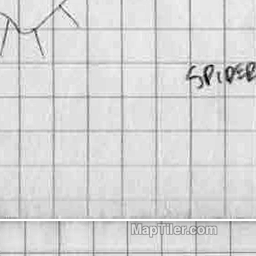 SPIDER
MapTiler.com